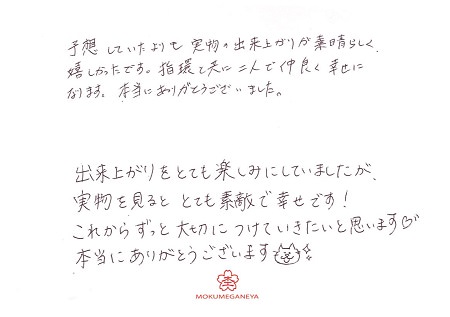 予想していたよりも実物の出来上がりが素晴らしく、
嬉しかったです。指環と共に二人で仲良く幸せに
なります。本当にありがとうございました。
出来上がりをとても楽しみにしていましたが、
実物を見ると とても素敵で幸せです！
これからずっと大切につけていきたいと思います♡
本当にありがとうございます
MOKUMEGANEYA